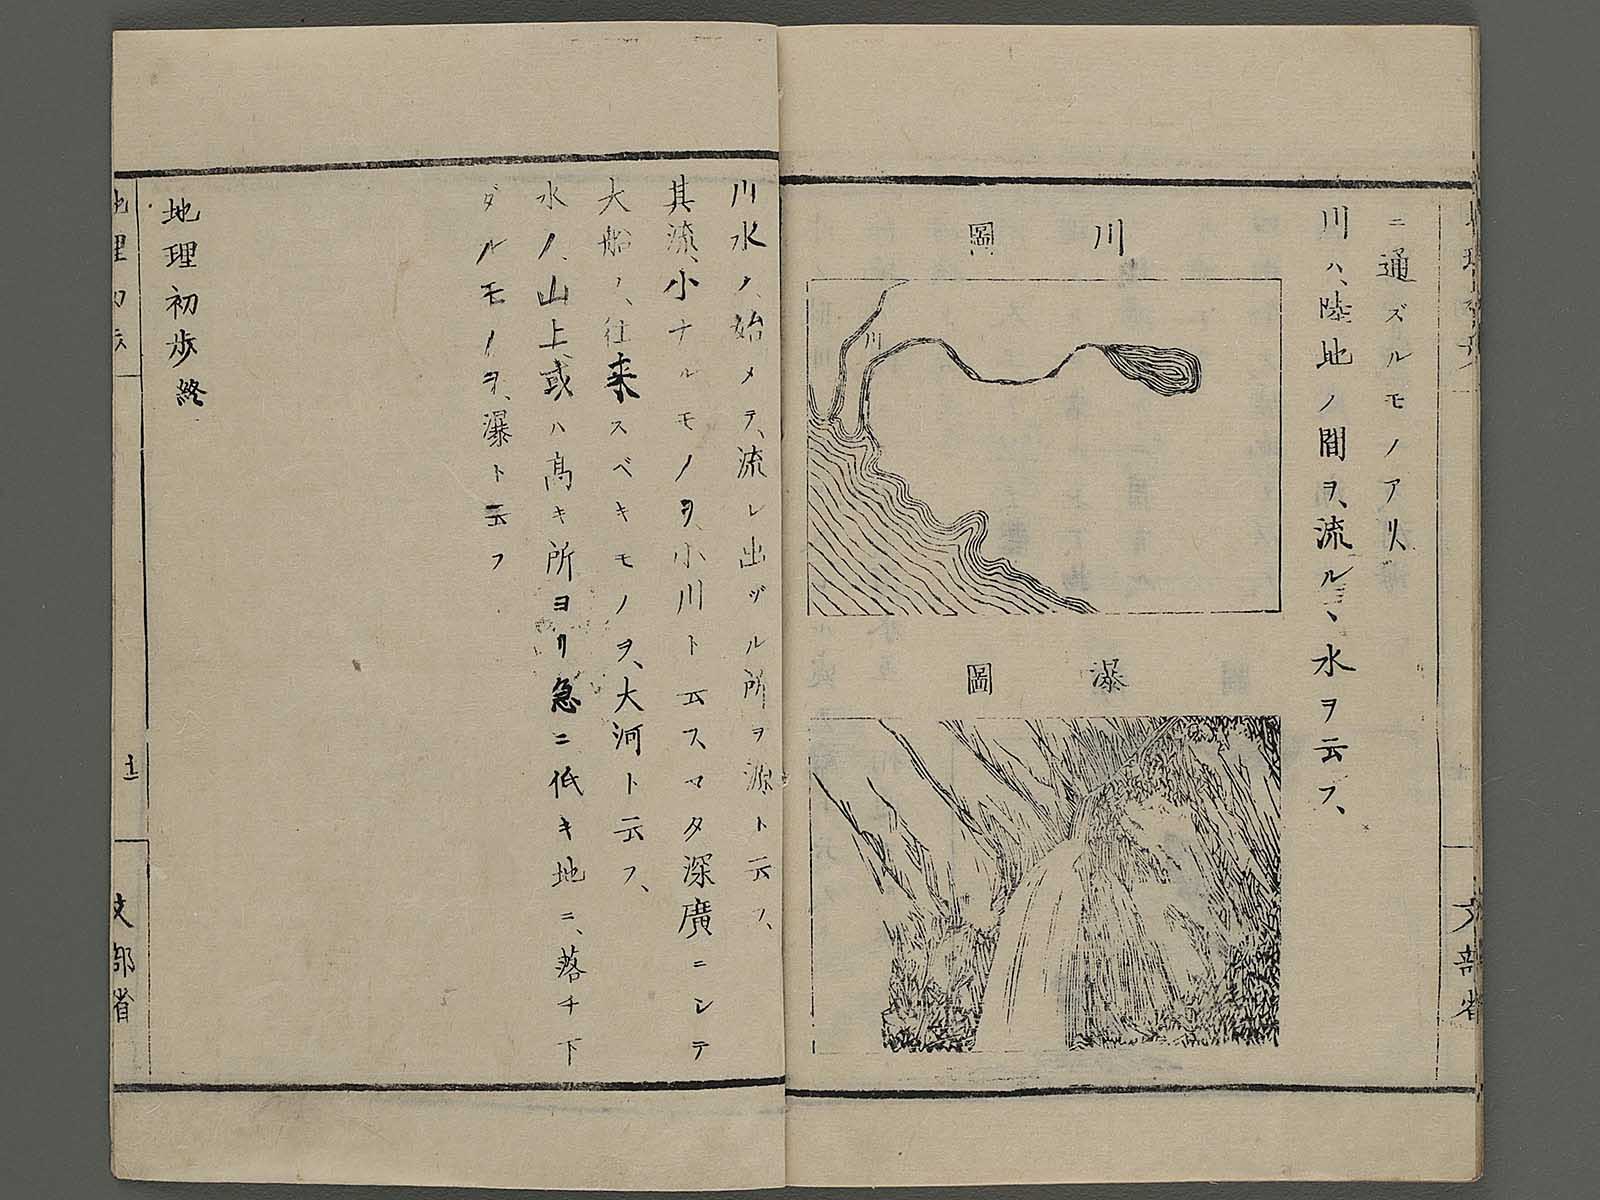 ニ通ズルモノアリ
川ハ、陸地ノ間ヲ、流ル、水ヲ云フ、
川圖
川
瀑圖
川水ノ、始メテ、流レ出ヅル所ヲ源ト云フ、
其流、小ナルモノヲ、小川ト云フ、マタ深廣ニシテ
大船ノ、往来スベキモノヲ、大河ト云フ、
水ノ、山上或ハ高キ所ヨリ急ニ低キ地ニ、落チ下
ダルモノヲ、瀑ト云フ
地理初歩終
地理初歩
十一
文部省
文部省